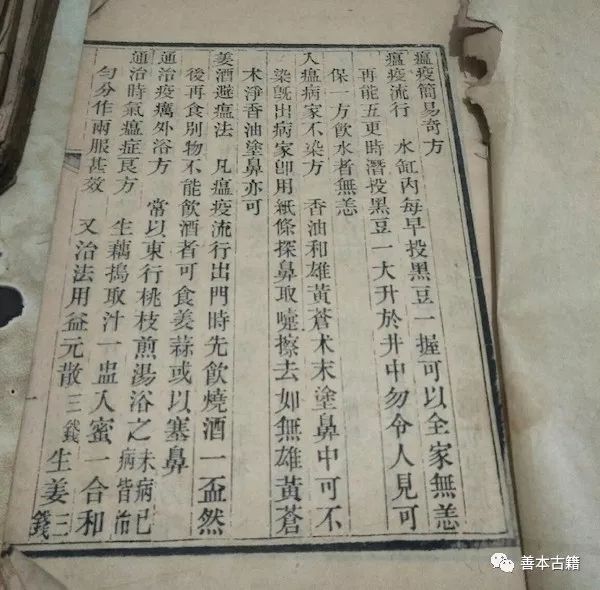 瘟疫簡易奇方
瘟疫流行　水缸內每早投黑豆一握可以全家無恙
再能五更時潛投黑豆一大升於井中勿令人見可
保一方飲水者無恙
入瘟病家不染方　香油和雄黃蒼术末塗鼻中可不
染旣出病家卽用紙條探鼻取嚏擦去如無雄黃蒼
术淨香油塗鼻亦可
姜酒避瘟法　凡瘟疫流行出門時先飲燒酒一盃然
後再食別物不能飲酒者可食姜蒜或以塞鼻
通治疫癘外浴方　常以東行桃枝煎湯浴之未病已病皆治
通治時氣瘟症良方　生藕搗取汁一盅入蜜一合和
勻分作兩服甚效　又治法用益元散三錢生姜三錢
善本古籍